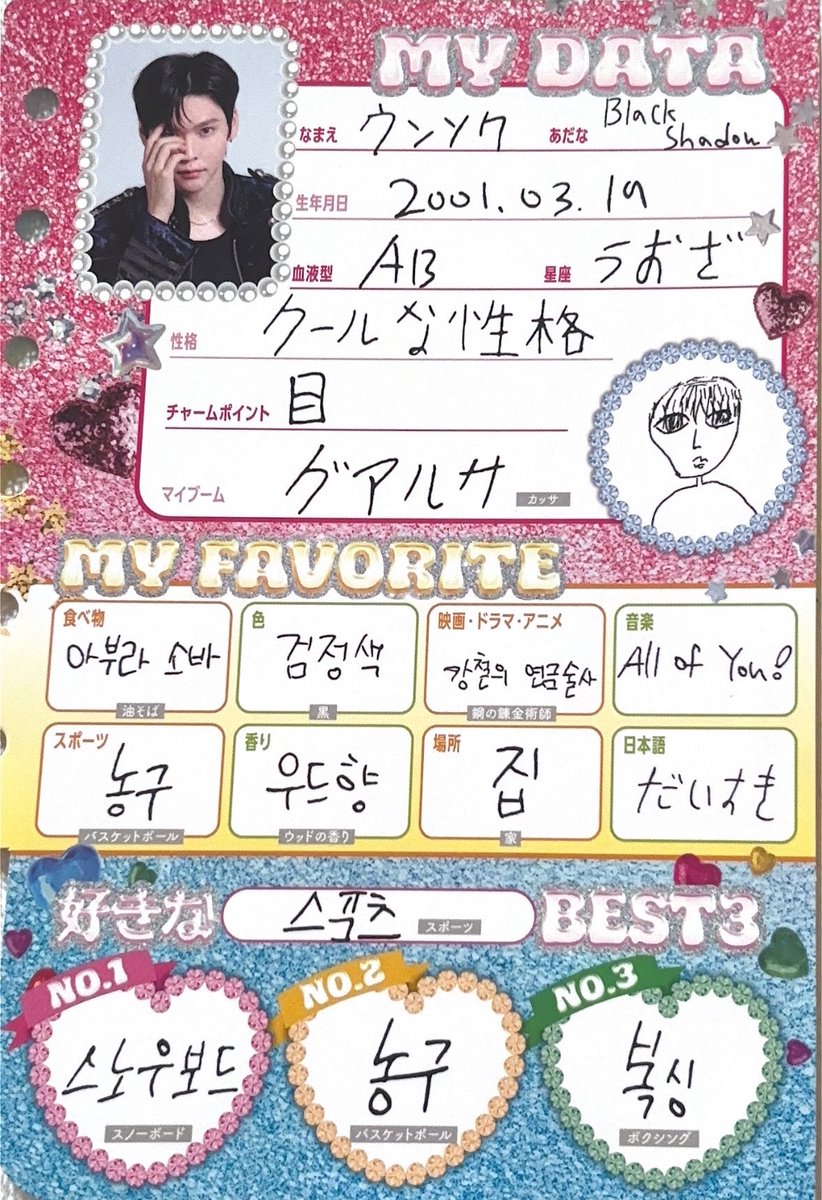 MY DATA
なまえ ウンソク あだな Black Shadow
生年月日 2001.03.19
血液型 AB 星座 うおざ
性格 クールな性格
チャームポイント 目
マイブーム グアルサ カッサ
MY FAVORITE
食べ物 色 映画・ドラマ・アニメ 音楽
아부라 소바 검정색 강철의 연금술사 All of You!
油そば 黒 鋼の錬金術師
スポーツ 香り 場所 日本語
농구 우드향 집 だいすき
バスケットボール ウッドの香り 家
好きな 스포츠 スポーツ BEST3
NO.1 NO.2 NO.3
스노우보드 농구 복싱
スノーボード バスケットボール ボクシング